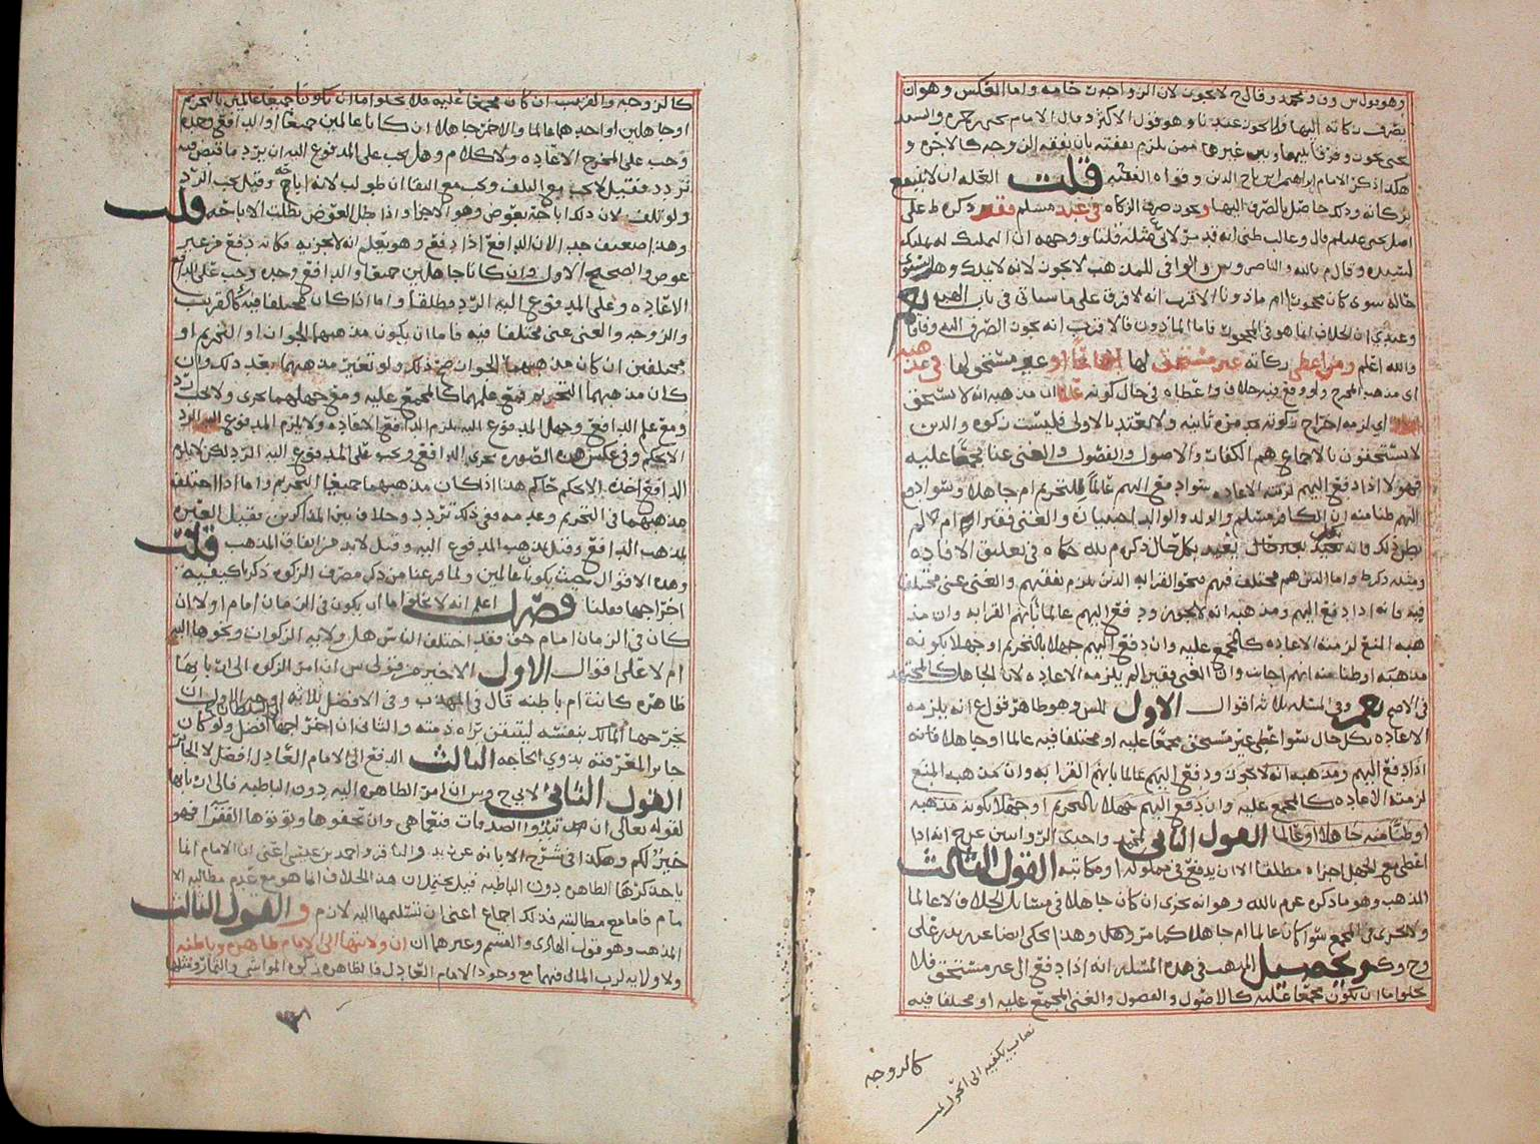 وهو قول س ون و محمد وقال ح لا يجوز لان الزواجة خاصه واما العكس وهو ان
يصرف زكاته اليها فلا يجوز عندنا وهو قول الاكثر وقال الامام يحيى
يجوز وفرقا بينها وبين غيرها ممن يلزم نفقته بان نفقه الزوجه كالاجره و
هكذا ذكر الامام ابراهيم بن تاج الدين وقواه الفقيه قلت العله ان لا ينتفع
بزكاته وذلك حاصل بالصرف اليها ويجوز صرف الزكاه في عبد مسلم فقير ذكره ط على
اصل يحيى عليلم قال وغالب ظني انه قد مر لاني مثله قلنا ووجهه ان التمليك له تمليك
لسيده وقال م بالله والناصر وس والوافي للمذهب لا يجوز لانه لا يملك وهل يستوي
حاله سوى كان محجورا ام ماذونا الاقرب انه لا فرق على ما سياتي في باب الهبه نعم
وعندي ان الخلاف انما هو في المحجور فاما الماذون فالاقرب انه يجوز الصرف اليه وفاقا
والله اعلم ومن اعطى زكاته غير مستحق لها اجماعا او غير مستحق لها في مذهبه
اي مذهب المخرج ولو وقع فيه خلاف واعطاه في حال كونه عالما ان مذهبه انه لا يستحق
اي لزمه اخراج زكوته مره ثانيه ولا يعتد بالاولى فليست زكوه والذين
لا يستحقون بالاجماع هم الكفار والاصول والفصول والغني غنا مجمعا عليه
فهولا اذا دفع اليهم لزمته الاعاده سوا دفع اليهم عالما للتحريم ام جاهلا وسوا دفع
اليهم ظنا منه ان الكافر مسلم والولد والوالد اجنبيان والغني فقير ام لا لم
يظن ذلك فانه يعيد بكل حال ذكره م بالله حكاه في تعليق الافاده
ومثله ذكر ط واما الذين هم مختلف فيهم فنحو القرابه الذين يلزم نفقتهم والغني غنى مختلفا
فيه فانه اذا دفع اليهم ومذهبه انه لا يجوز ودفع اليهم عالما بانهم القرابه وان مذ
هبه المنع لزمته الاعاده كالمجمع عليه وان دفع اليهم جهلا بالتحريم او جهلا بكونه
مذهبه او ظنا منه انهم اجانب وان الغني فقير لم يلزمه الاعاده لان الجاهل كالمجتهد
في الاصح نعم وفي المسئله ثلاثه اقوال الاول للس وهو ظاهر قول ع انه يلزمه
الاعاده بكل حال سوا اعطى غير مستحق مجمعا عليه او مختلفا فيه عالما او جاهلا فانه
اذا دفع اليهم ومذهبه انه لا يجوز ودفع اليهم عالما بانهم القرابه وان مذهبه المنع
لزمته الاعاده كالمجمع عليه وان دفع اليهم جهلا بالتحريم او جهلا بكونه مذهبه
او ظنا منه جاهلا او عالما القول الثاني لمحمد واحدى الروايتين عن ح انه اذا
اعطى مع الجهل اجزاه مطلقا الا ان يدفع في مملوكه او مكاتبه القول الثالث
المذهب وهو ما ذكره عن م بالله وهو انه يجزي ان كان جاهلا في مسايل الخلاف لا عالما
ولا يجزي في المجمع سوا كان عالما ام جاهلا كما مر وهذا يحكى ايضا عن زيد بن علي
وح وك وتحصيل المذهب في هذه المسئله انه اذا دفع الى غير مستحق فلا
يخلو اما ان يكون مجمعا عليه كالاصول والفصول والغني المجمع عليه او مختلفا فيه
كالزوجه
نصاب يكفيه الى الحول
كالزوجه والقريب ان كان مجمعا عليه فلا يخلو اما ان يكونا جميعا عالمين بالتحريم
او جاهلين او احدهما عالما والاخر جاهلا ان كانا عالمين جميعا او الدافع وحده
وجب على المخرج الاعاده ولا كلام وهل يجب على المدفوع اليه ان يرد ما قبض فيه
تردد فقيل لا يجب مع التلف ويجب مع البقا ان طولب لانه اباحه وقيل يجب الرد
ولو تلف لان ذلك اباحه بعوض وهو الاجزا واذا بطل العوض بطلت الاباحه قلت
وهذا ضعيف جدا لان الدافع اذا دفع وهو يعلم انه لا يجزيه فكانه دفع من غير
عوض والصحيح الاول وان كانا جاهلين جميعا والدافع وحده وجب على الدافع
الاعاده وعلى المدفوع اليه الرد مطلقا واما اذا كان مختلفا فيه كالقريب
والزوجه والغني غنى مختلفا فيه فاما ان يكون مذهبهما الجواز او التحريم او
مختلفين ان كان مذهبهما الجواز صح ذلك ولو تغير مذهبهما بعد ذلك وان
كان مذهبهما التحريم فمع علمهما كالمجمع عليه ومع جهلهما يجزى ولا يجب رد
ومع علم الدافع وجهل المدفوع اليه يلزم الدافع الاعاده ولا يلزم المدفوع اليه الرد
الا بحكم وفي عكس هذه الصوره يجزي الدافع ويجب على المدفوع اليه الرد لكن لا يلزم
الدافع اخذه الا بحكم حاكم هذا اذا كان مذهبهما جميعا التحريم واما اذا اختلف
مذهبهما في التحريم وعدمه ففي ذلك تردد وخلاف بين المذاكرين فقيل العبره
لمذهب الدافع وقيل بمذهب المدفوع اليه وقيل لا بد من اتفاق المذهب قلت
وهذه الاقوال حيث يكونا عالمين ولما فرغنا من ذكر مصرف الزكوه ذكرنا كيفيه
اخراجها فقلنا فصل اعلم انه لا يخلو اما ان يكون في الزمان امام او لا ان
كان في الزمان امام حق فقد اختلف الناس هل ولايه الزكوات ونحوها اليه
ام لا على اقوال الاول الاخير من قولي س ان امر الزكوه الى اربابها
ظاهره كانت ام باطنه قال في المهذب وفي الافضل ثلاثه اوجه الاول ان
يخرجها المالك بنفسه ليتيقن براه ذمته والثاني ان اخراجها الى السلطان افضل ولو كان
جايرا لمعرفته بذوي الحاجه الثالث الدفع الى الامام العادل افضل لا الجاير
القول الثاني لابي ح وس ان امر الظاهره اليه دون الباطنه فالى اربابها
لقوله تعالى ان تبدوا الصدقات فنعما هي وان تخفوها وتؤتوها الفقرا فهو
خير لكم وهكذا في شرح الابانه عن زيد والناصر واحمد بن عيسى اعني ان الامام انما
ياخذ كرها الظاهره دون الباطنه قيل يحتمل ان هذا الخلاف انما هو مع عدم مطالبه الا
مام فاما مع مطالبته فذلك اجماع اعني ان تسليمها اليه لازم والقول الثالث
المذهب وهو قول الهادي والقسم وغيرهما ان ولايتها الى الامام ظاهره وباطنه
ولا ولايه لرب المال فيهما مع وجود الامام العادل فالظاهره زكوه المواشي والثمار ومثلها